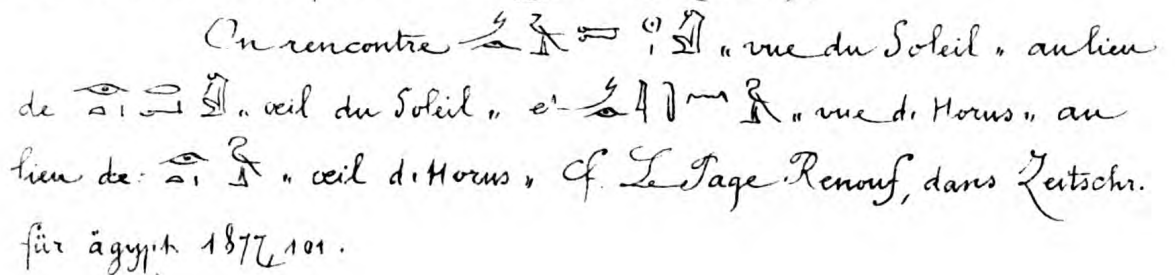 On rencontre „ vue du Soleil „ au lieu
de „ œil du Soleil „ et „ vue d'Horus „ au
lieu de: „ œil d'Horus „ Cf. Le Page Renouf, dans Zeitschr.
für ägypt. 1877, 101.